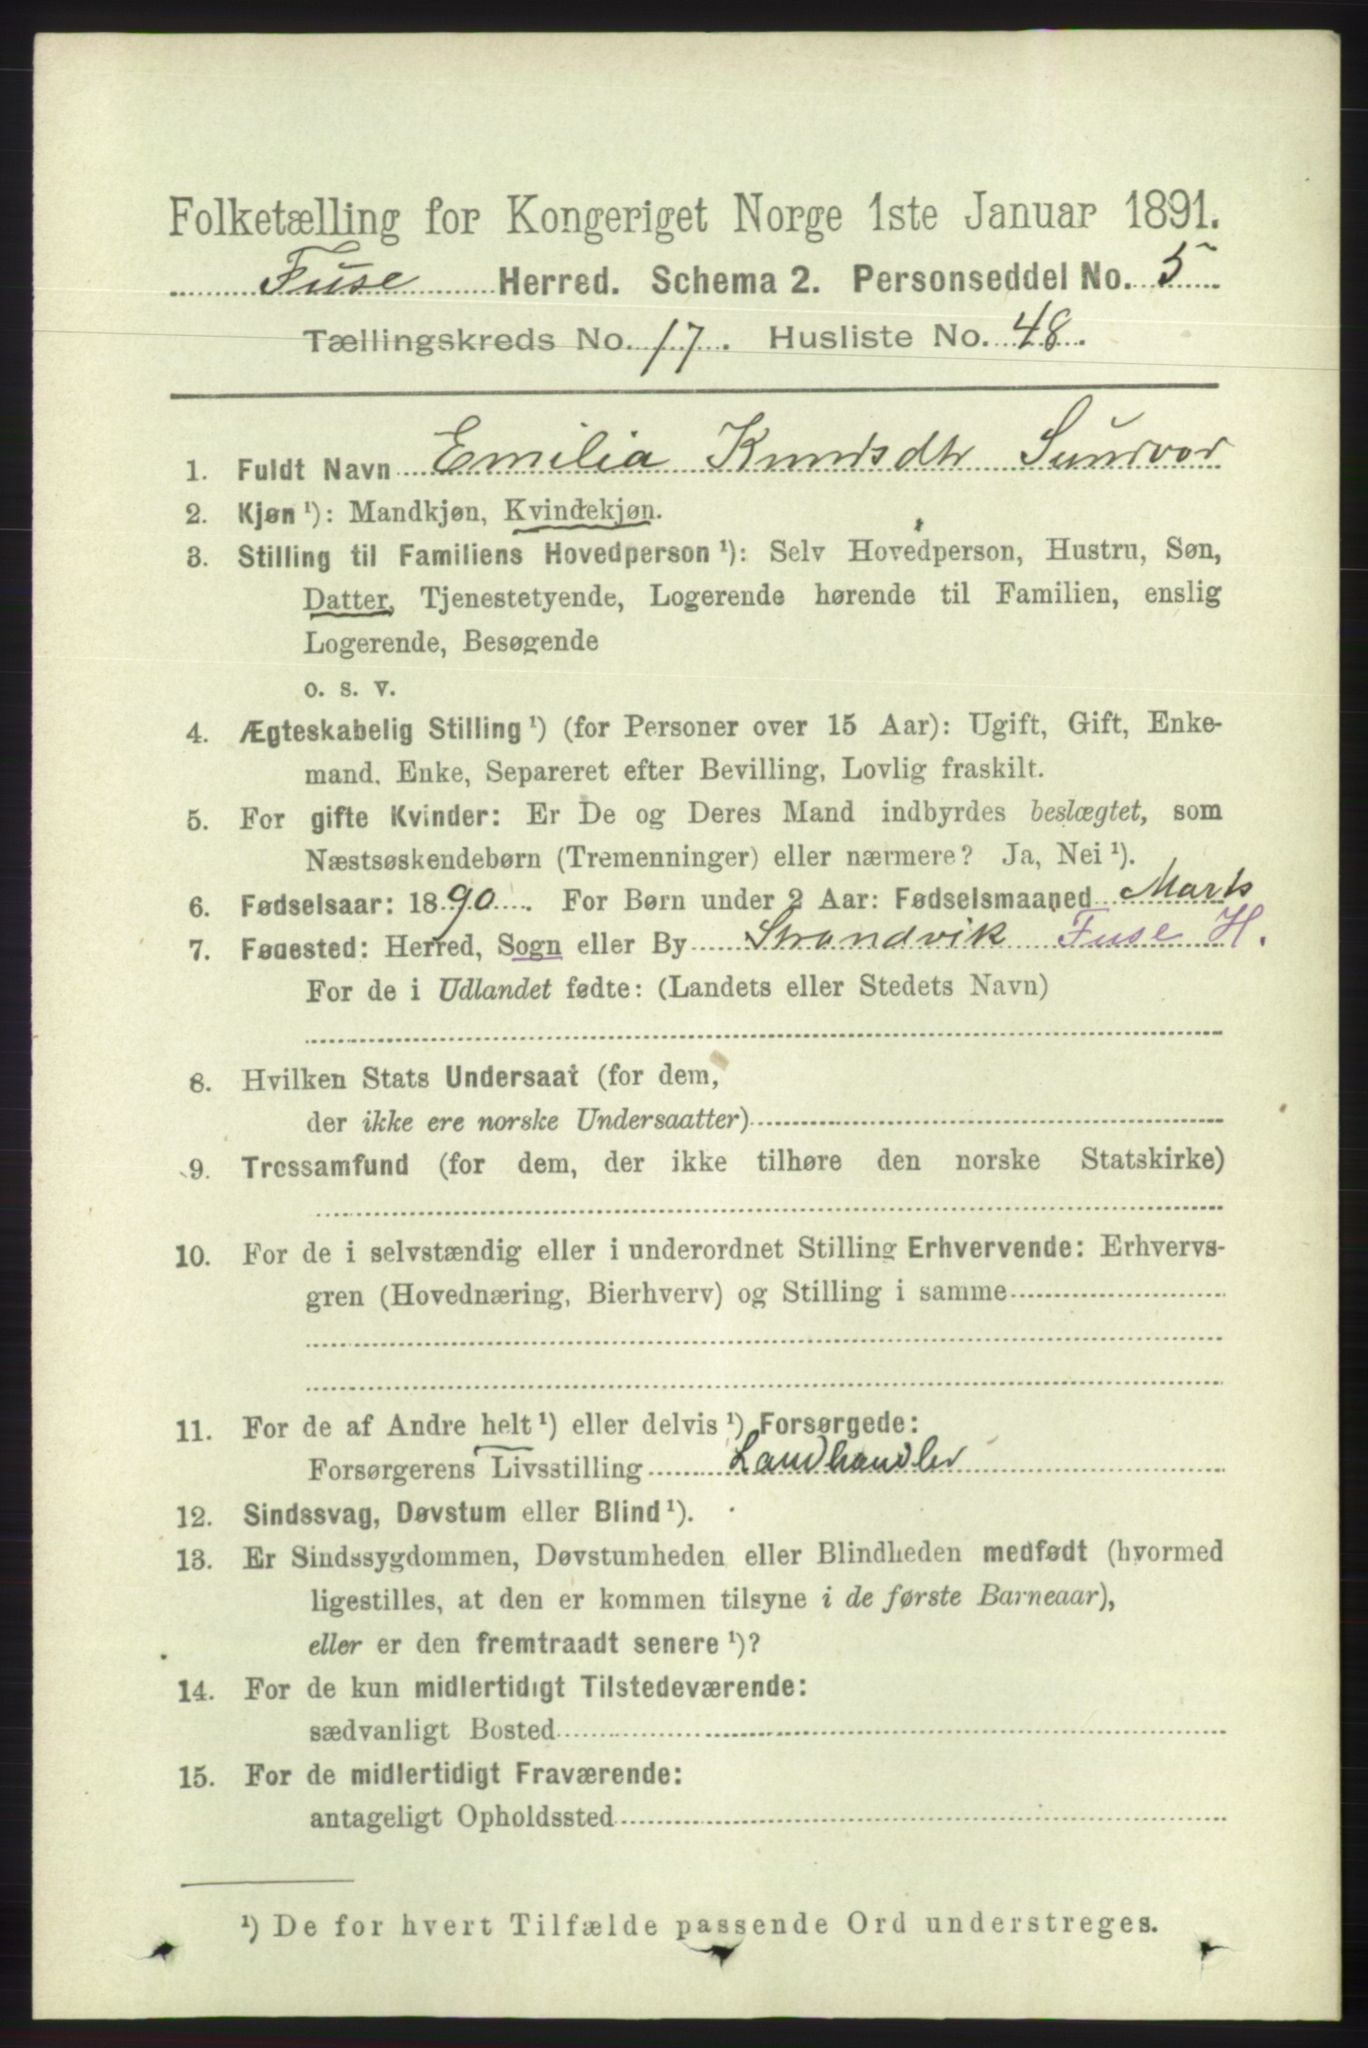 Folketælling for Kongeriget Norge 1ste Januar 1891.
Fuse Herred. Schema 2. Personseddel No. 5
Tællingskreds No. 17. Husliste No. 48.
1. Fuldt Navn Emilia Knudsdtr Sundvor
2. Kjøn ¹): Mandkjøn, Kvindekjøn.
3. Stilling til Familiens Hovedperson ¹): Selv Hovedperson, Hustru, Søn,
Datter, Tjenestetyende, Logerende hørende til Familien, enslig
Logerende, Besøgende
o. s. v.
4. Ægteskabelig Stilling ¹) (for Personer over 15 Aar): Ugift, Gift, Enke-
mand, Enke, Separeret efter Bevilling, Lovlig fraskilt.
5. For gifte Kvinder: Er De og Deres Mand indbyrdes beslægtet, som
Næstsøskendebørn (Tremenninger) eller nærmere? Ja, Nei ¹).
6. Fødselsaar: 1890. For Børn under 2 Aar: Fødselsmaaned Marts
7. Fødested: Herred, Sogn eller By Strandvik Fuse H.
For de i Udlandet fødte: (Landets eller Stedets Navn)
8. Hvilken Stats Undersaat (for dem,
der ikke ere norske Undersaatter)
9. Trossamfund (for dem, der ikke tilhøre den norske Statskirke)
10. For de i selvstændig eller i underordnet Stilling Erhvervende: Erhvervs-
gren (Hovednæring, Bierhverv) og Stilling i samme
11. For de af Andre helt ¹) eller delvis ¹) Forsørgede:
Forsørgerens Livsstilling Landhandler
12. Sindssvag, Døvstum eller Blind ¹).
13. Er Sindssygdommen, Døvstumheden eller Blindheden medfødt (hvormed
ligestilles, at den er kommen tilsyne i de første Barneaar),
eller er den fremtraadt senere ¹)?
14. For de kun midlertidigt Tilstedeværende:
sædvanligt Bosted
15. For de midlertidigt Fraværende:
antageligt Opholdssted
¹) De for hvert Tilfælde passende Ord understreges.